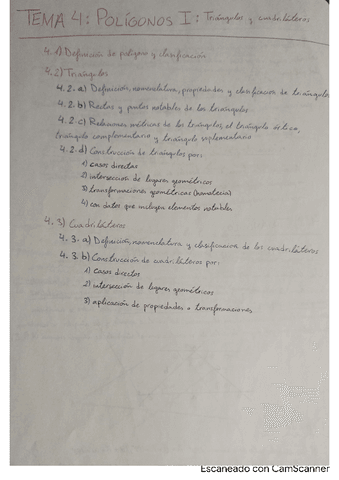 TEMA 4: POLÍGONOS I: Triángulos y cuadriláteros
4.1) Definición de polígono y clasificación
4.2) Triángulos
4.2.a) Definición, nomenclatura, propiedades y clasificación de triángulos
4.2.b) Rectas y puntos notables de los triángulos
4.2.c) Relaciones métricas de los triángulos, el triángulo órtico, triángulo complementario y triángulo suplementario
4.2.d) Construcción de triángulos por:
1) casos directos
2) intersección de lugares geométricos
3) transformaciones geométricas (homotecia)
4) con datos que incluyen elementos notables
4.3) Cuadriláteros
4.3.a) Definición, nomenclatura y clasificación de los cuadriláteros
4.3.b) Construcción de cuadriláteros por:
1) casos directos
2) intersección de lugares geométricos
3) aplicación de propiedades o transformaciones
Escaneado con CamScanner